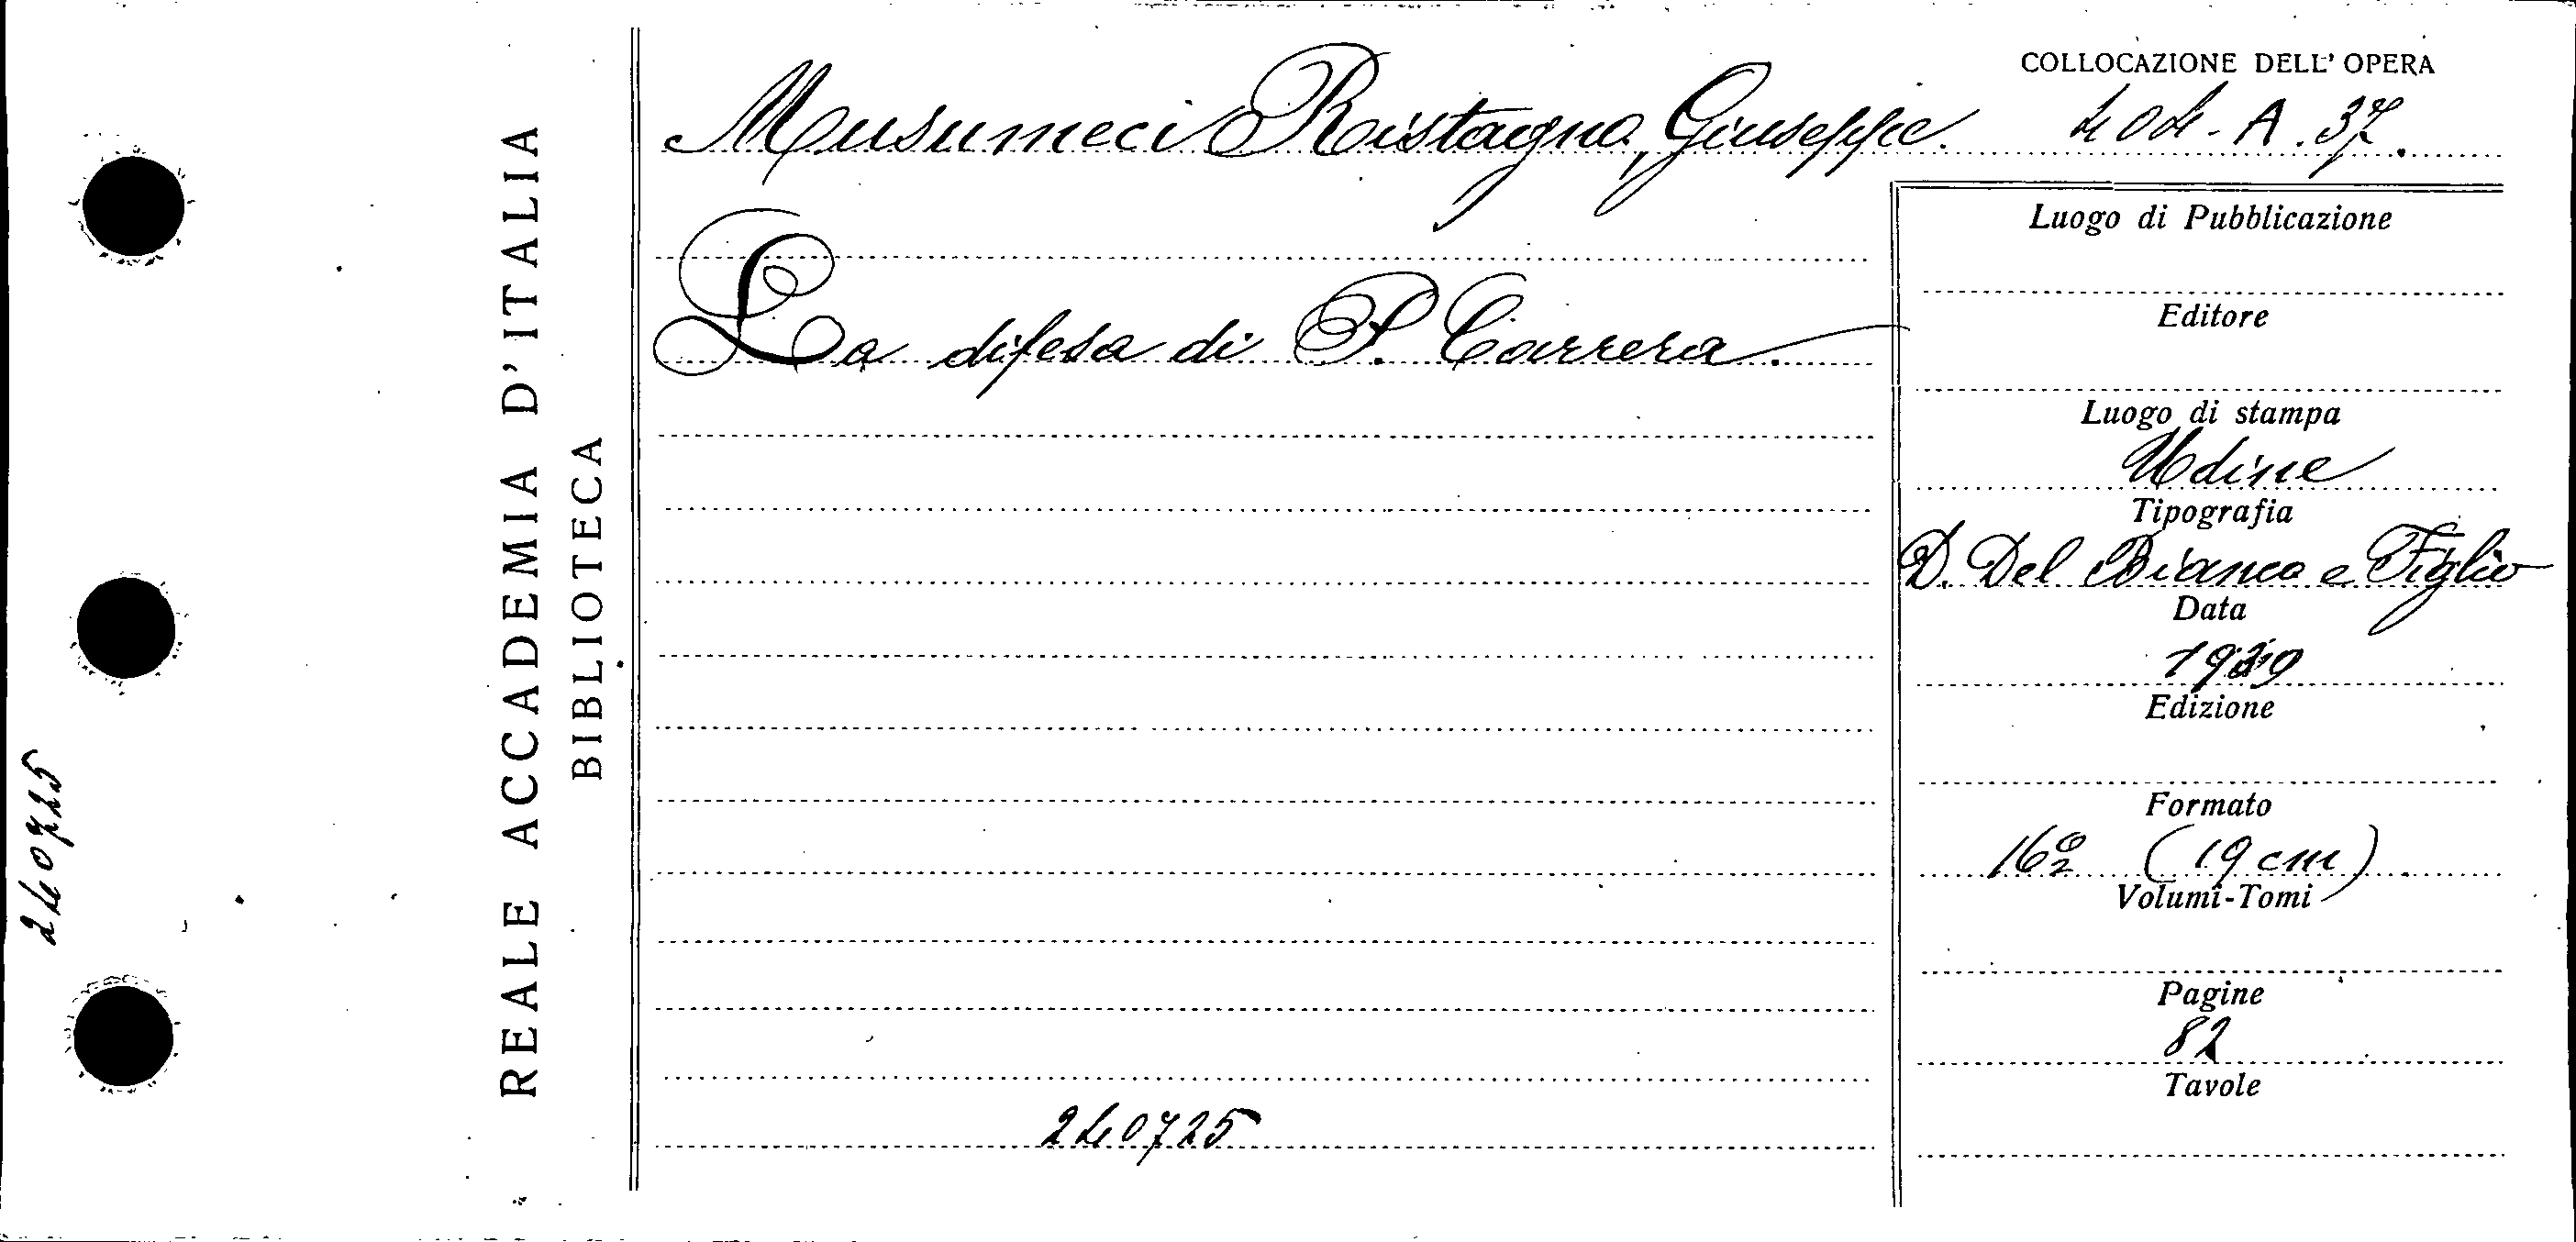 COLLOCAZIONE DELL' OPERA
Musumeci Ristagno, Giuseppe. 404-A.37.
La difesa di P. Carrera.
Luogo di Pubblicazione
Editore
Luogo di stampa
Udine
Tipografia
D. Del Bianco e Figlio
Data
Edizione
Formato
16º (19 cm)
Volumi-Tomi
Pagine
82
Tavole
240725
REALE ACCADEMIA D'ITALIA
BIBLIOTECA
240725